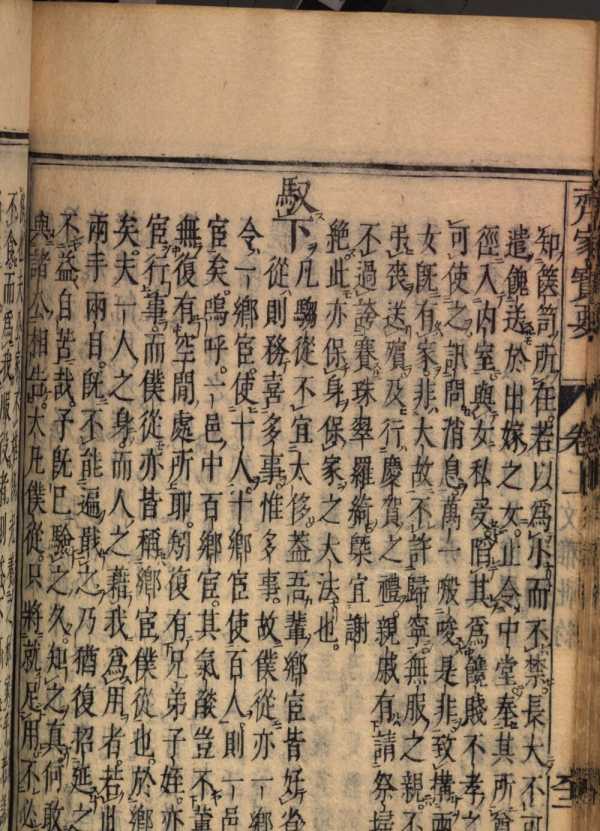 齊家寶要
卷
知篋笥所在若以為小而不禁長大不可
遣餽送於出嫁之女止令中堂奉其所
徑入內室與女私受陷其為饞賤不孝之
可使之訊問消息萬一搬唆是非致搆兩
女既有家非大故不許歸寧無服之親不
弔喪送殯及行慶賀之禮親戚有請祭掃
不過誇賽珠翠羅綺槩宜謝
絕此亦保身保家之大法也
馭下凡騶從不宜太侈蓋吾輩鄉宦皆好省
從則務喜多事惟多事故僕從亦一
令一鄉宦使十人十鄉宦使百人則一邑
宦矣嗚呼一邑中百鄉宦其氣燄豈不薰
無復有空閒處所耶矧復有兄弟子姪亦
宦行事而僕從亦皆稱鄉宦僕從也於鄉
矣夫一人之身而人之藉我為用者若此
兩手兩目既不能遍戢之乃猶復招延之
不益自苦哉予既已驗之久知之真何敢
與諸公相告大凡僕從只將就足用不必
不食而為我服役者則